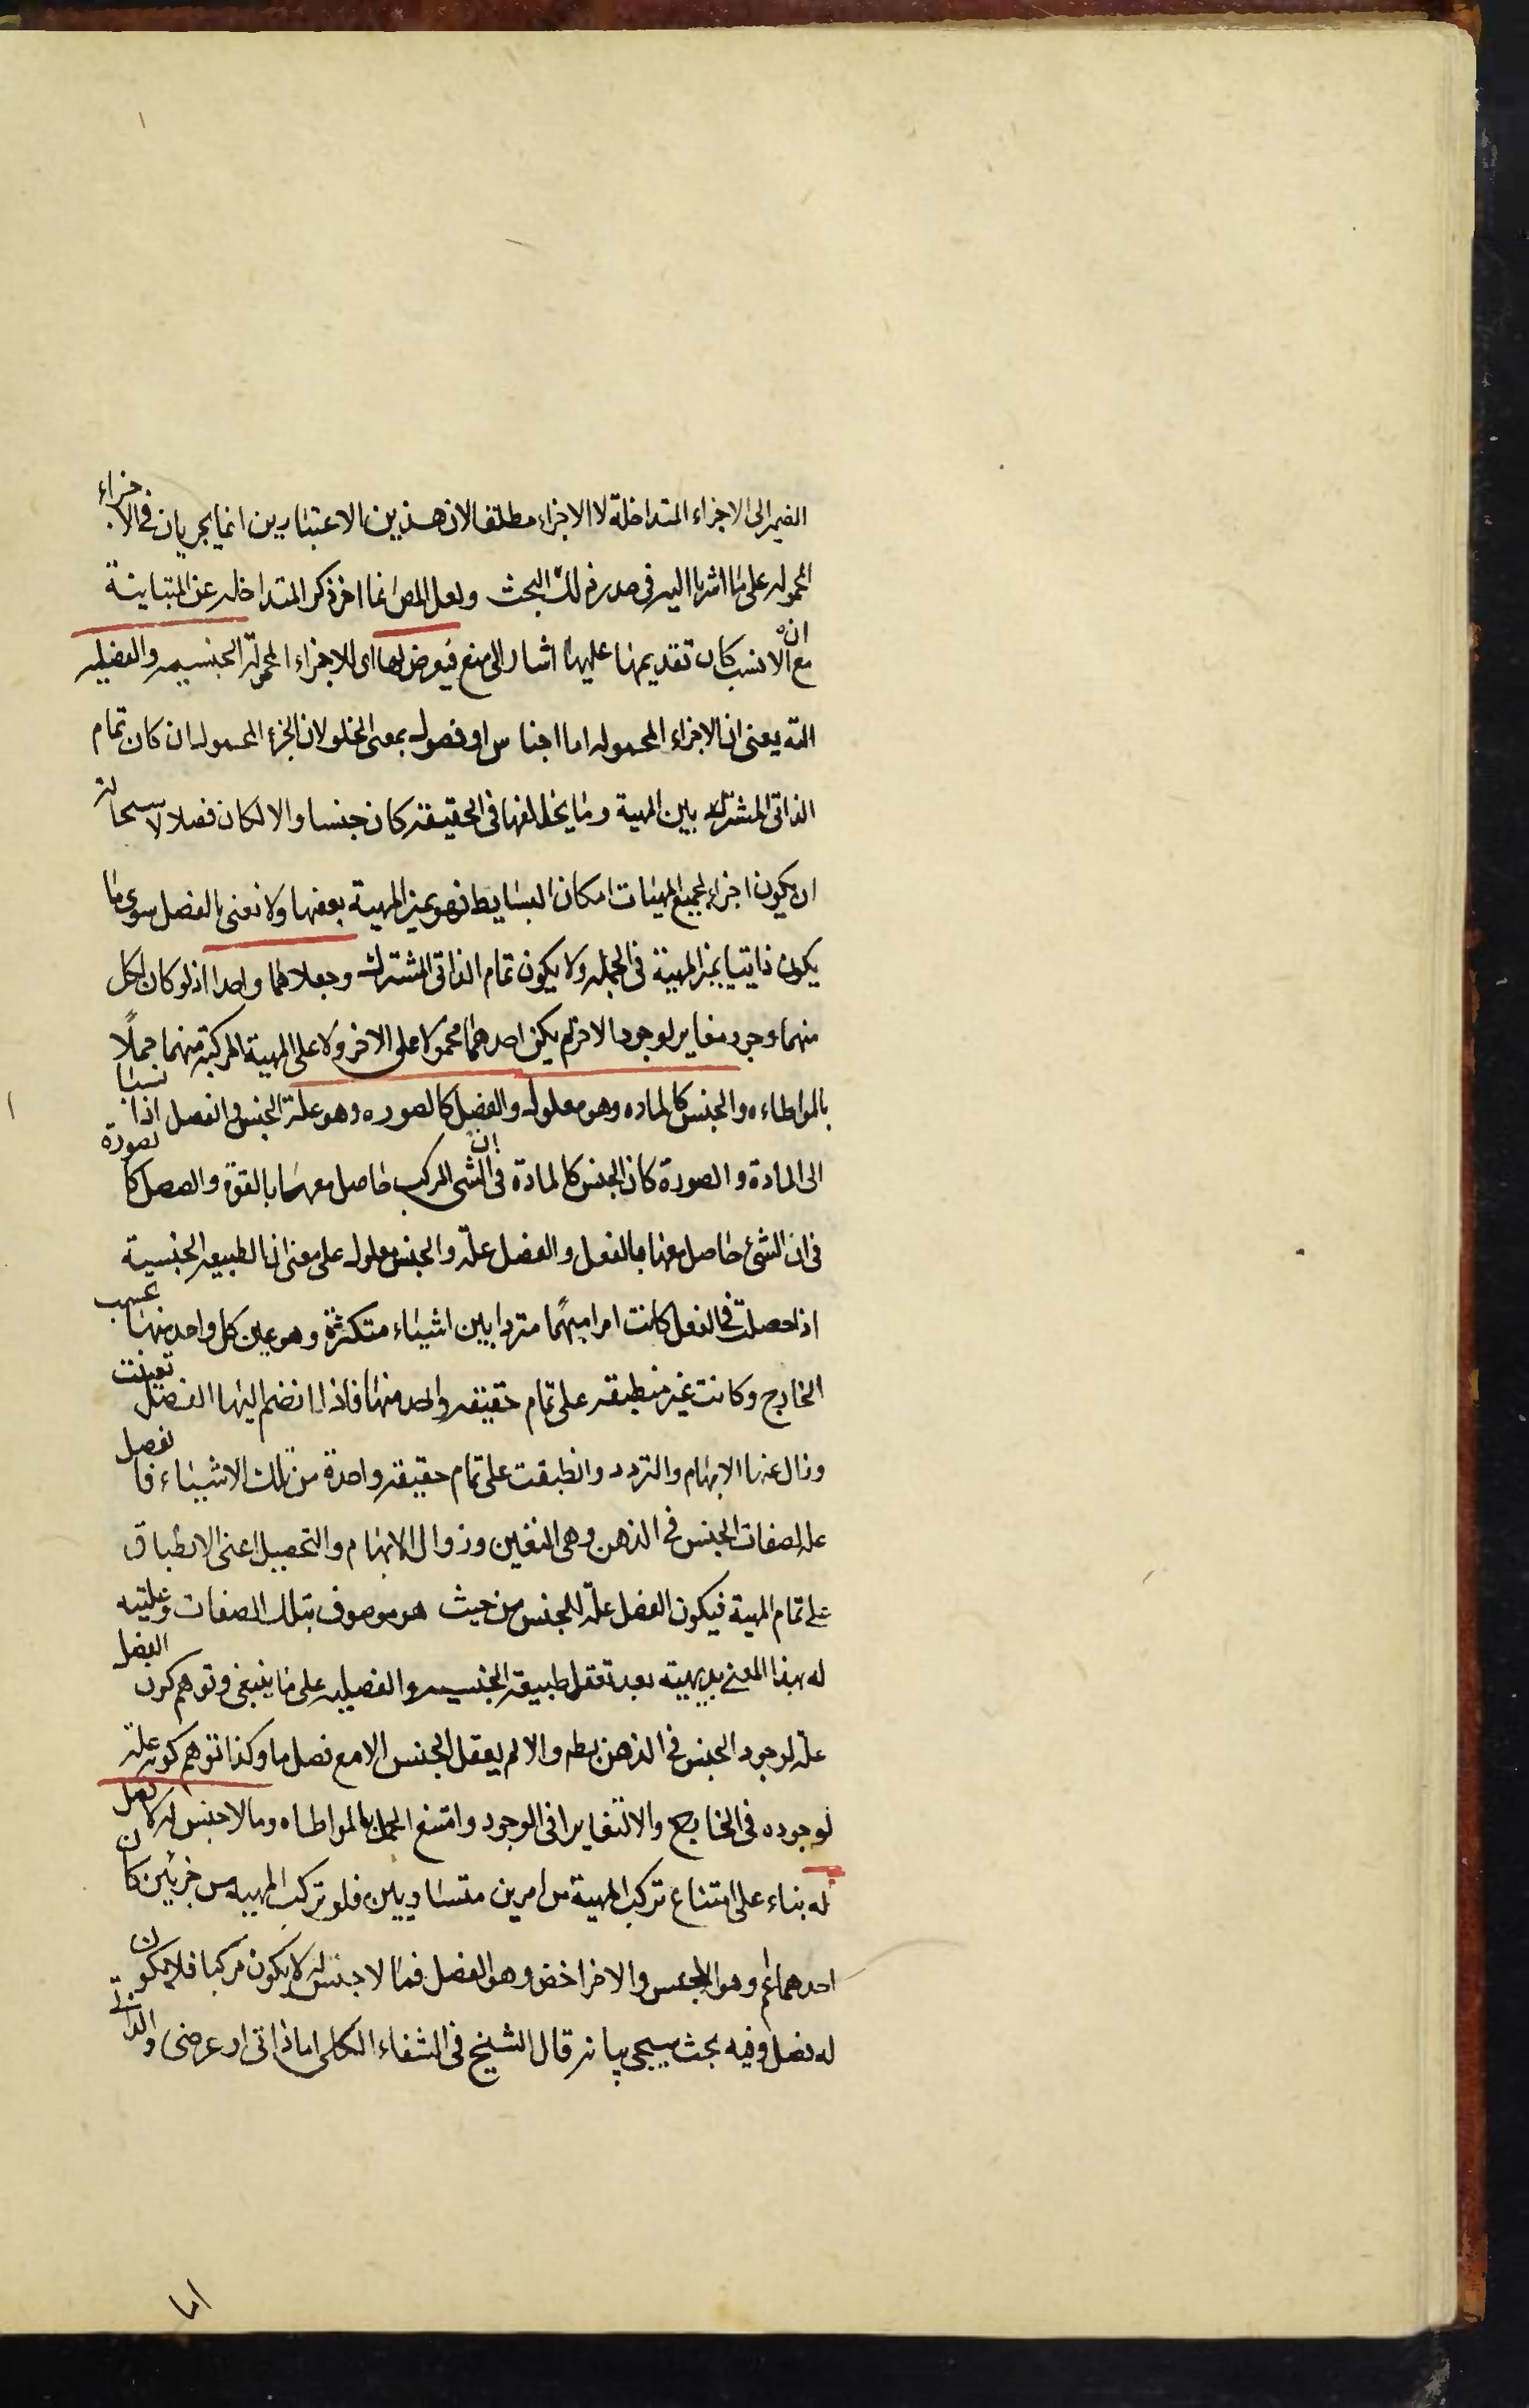 الضمير الى الاجزاء المتداخلة لا الاجزاء مطلقا لان هذين الاعتبارين انما يجريان فى الاجزاء
المحموله على ما اشرنا اليه فى صدر ذلك البحث ولعل المص انما اخر ذكر المتداخله عن المتباينة
مع ان الانسب كان تقديمها عليها اشار الى منع فيعرض لها اى للاجزاء المحمولة الجنسيه والفصليه
البته يعنى ان الاجزاء المحموله اما اجناس او فصول بمعنى الخلو لان الجزء المحمول ان كان تمام
الذاتى المشترك بين المهية وما يخالفها فى الحقيقة كان جنسا والا لكان فصلا لاستحالة
ان يكون اجزاء لجميع المهيات امكان البسايط فهو يميز المهية بعضها ولا نعنى بالفصل سوى ما
يكون ذاتيا يميز المهية فى الجمله ولا يكون تمام الذاتى المشترك وجعلاهما واحدا اذ لو كان لكل
منهما وجود مغاير لوجود الاخر لم يكن احدهما محمولا على الاخر ولا على المهية المركبة منهما حملًا
بالمواطاءه والجنس كالماده وهو معلول والفصل كالصوره وهو علة الجنس والفصل اذا نسبا
الى المادة والصورة كان الجنس كالمادة فى ان الشى المركب حاصل معهما بالقوة والفصل كالصورة
فى ان الشئ حاصل معها بالفعل والفصل علة والجنس معلول على معنى ان الطبيعه الجنسية
اذا حصلت فى العقل كانت امرا مبهمًا مترددا بين اشياء متكثرة وهو عين كل واحد منها بحسب
الخارج وكانت غير منطبقه على تمام حقيقه واحد منها فاذا انضم اليها الفصل تعينت
وزال عنها الابهام والتردد وانطبقت على تمام حقيقه واحدة من تلك الاشياء فالفصل
علة لصفات الجنس فى الذهن وهى التعين وزوال الابهام والتحصيل اعنى الانطباق
على تمام المهية فيكون الفصل علة للجنس من حيث هو موصوف بتلك الصفات وعليته
له بهذا المعنى بديهية بعد تعقل طبيعة الجنسيه والفصليه على ما ينبغى وتوهم كون الفصل
علة لوجود الجنس فى الذهن بطه والا لم يعقل الجنس الا مع فصل ما وكذا توهم كونه علة
لوجوده فى الخارج والا تغايرا فى الوجود وامتنع الحمل بالمواطاه وما لا جنس له لا فصل
له بناء على امتناع تركب المهية من امرين متساويين فلو تركب المهيه من جزئين كان
احدهما اعم وهو الجنس والاخر اخص وهو الفصل فما لا جنس له لا يكون مركبا فلا يكون
له فصل وفيه بحث سيجى بيانه قال الشيخ فى الشفاء الكلى اما ذاتى او عرضى والذاتى
اما